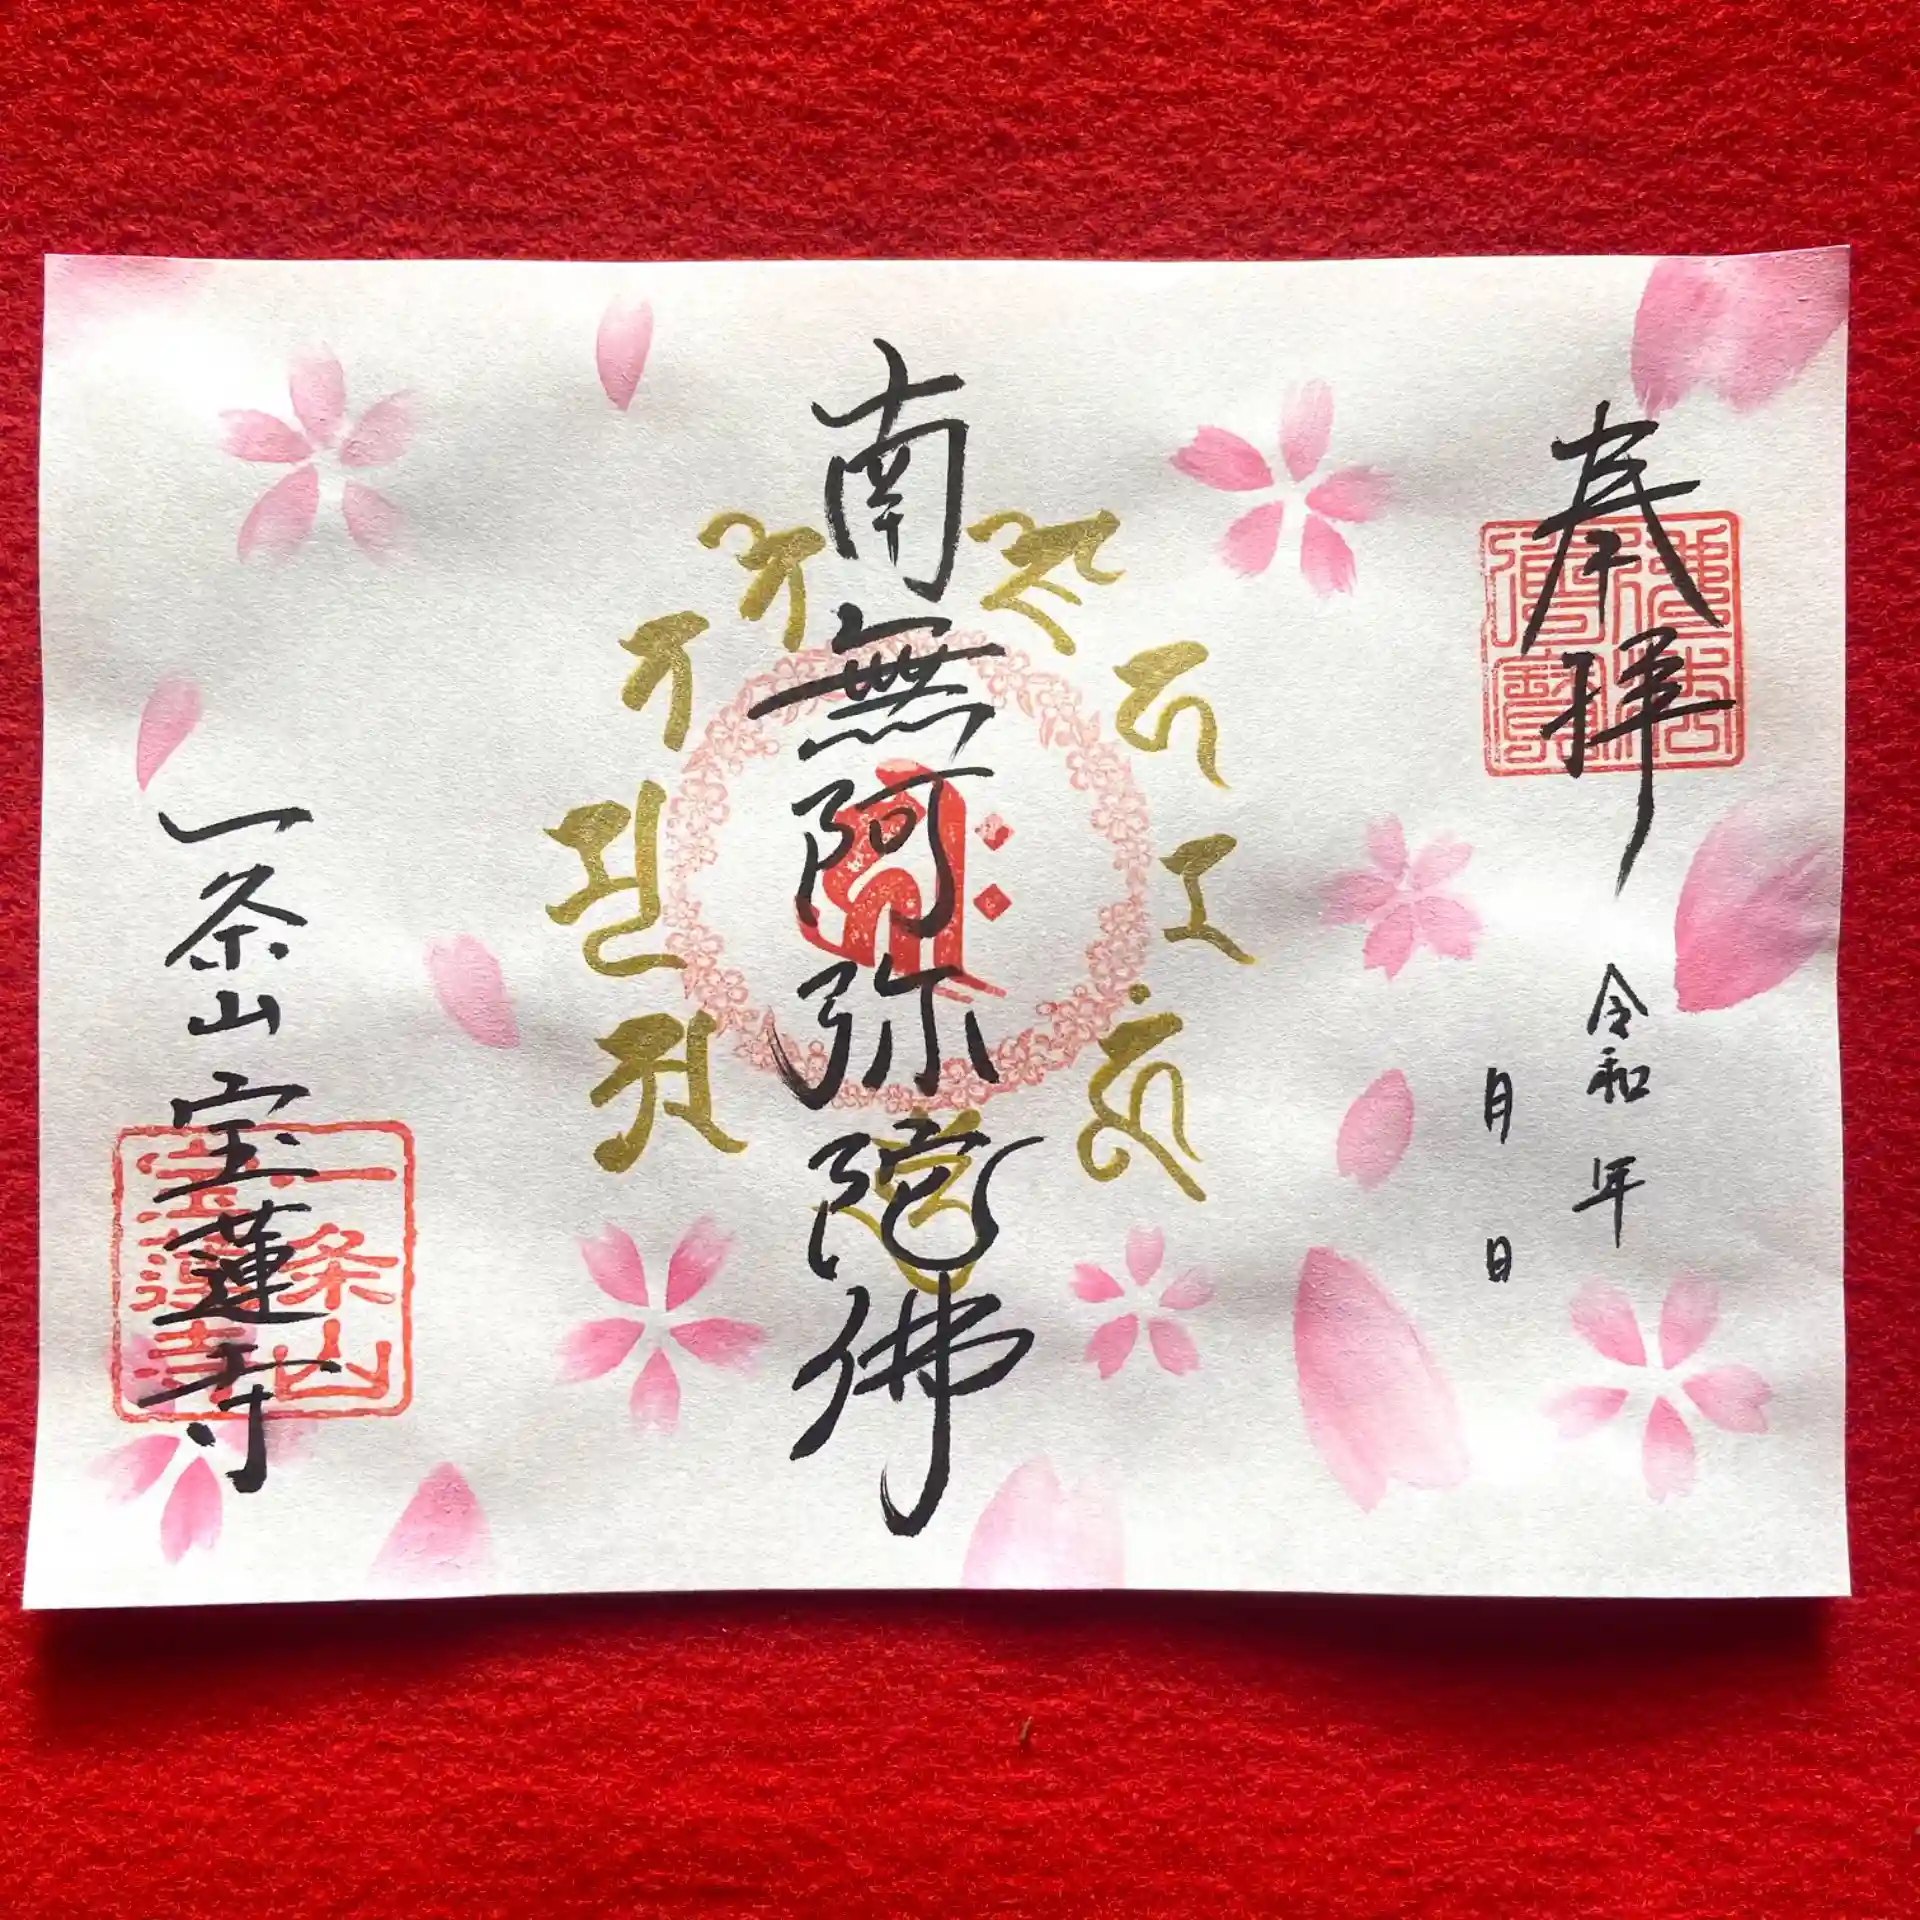 奉拝
令和 年
月 日
南無阿弥陀佛
一条山 宝蓮寺
佛法僧寳
一条山
宝蓮寺